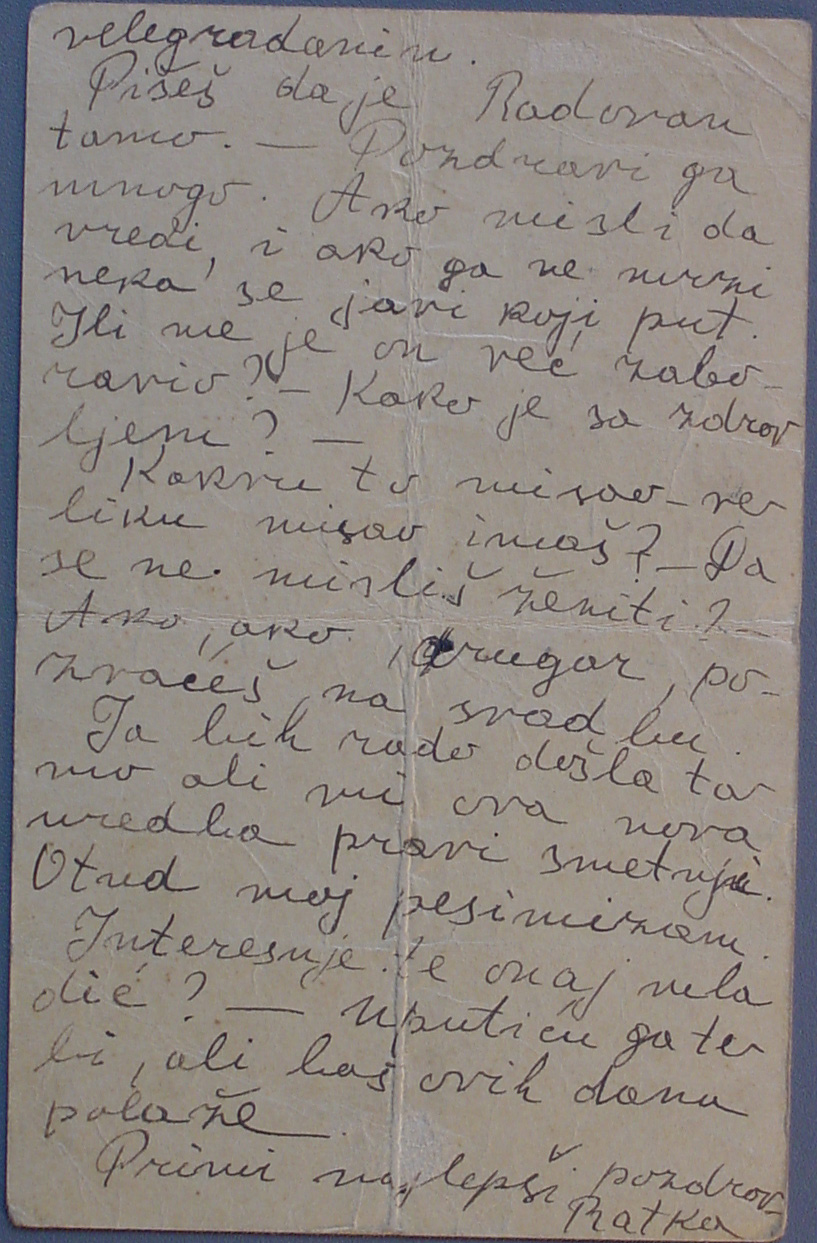 velegrađanin.
Pišeš da je Radovan
tamo. — Pozdravi ga
mnogo. Ako misli da
vredi, i ako ga ne mrzi
neka se javi koji put.
Ili me je on već zabo-
ravio? — Kako je sa zdrav
ljem? —
Kakvu to misao - ve
liku misao imaš? — Da
se ne misliš ženiti? —
Ako, ako, drugar, po-
zvaćeš na svadbu.
Ja bih rado došla ta
mo ali mi ova nova
uredba pravi smetnje.
Otud moj pesimizam.
Interesuje te onaj mla
dić? — Uputiću ga te
bi, ali baš ovih dana
polaže.
Primi najlepši pozdrav
Ratka